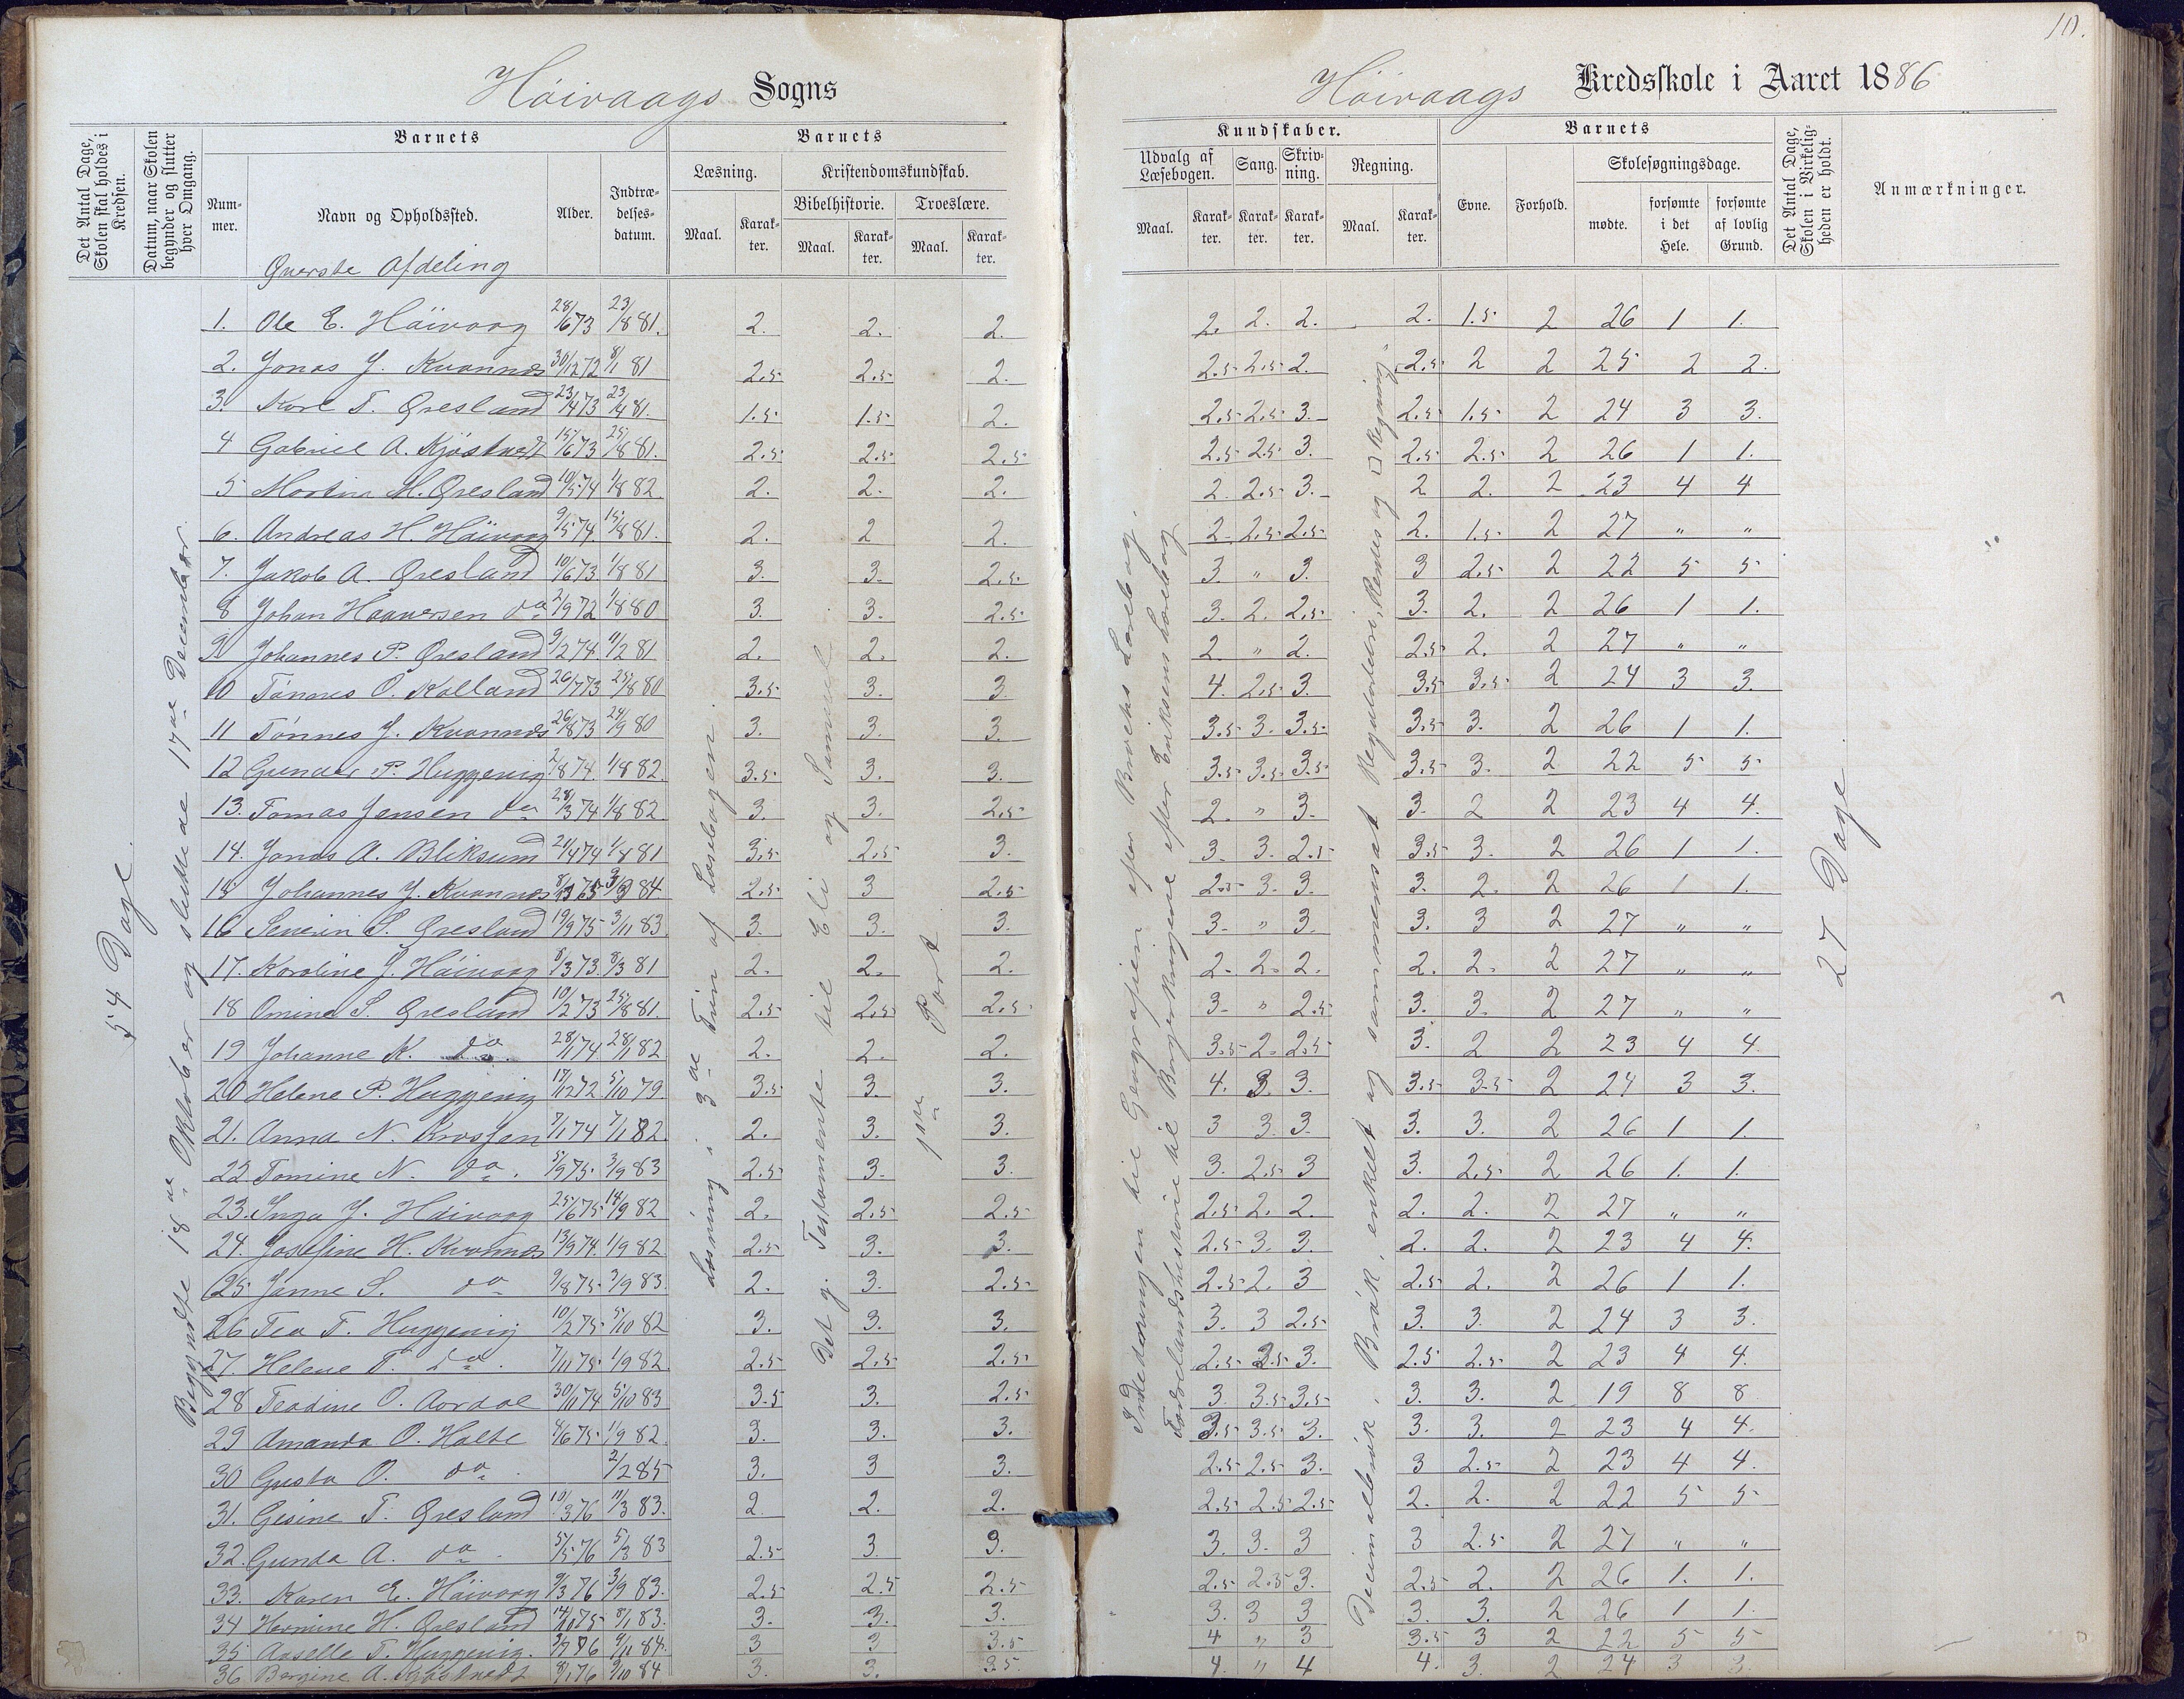 10.
Höivaags Sogns
Höivaags Kredsskole i Aaret 1886
Det Antal Dage, Skolen skal holdes i Kredsen.
Datum, naar Skolen begynder og slutter hver Omgang.
Barnets
Nummer.
Navn og Opholdssted.
Alder.
Indtrædelsesdatum.
Barnets
Læsning.
Maal.
Karakter.
Kristendomskundskab.
Bibelhistorie.
Maal.
Karakter.
Troeslære.
Maal.
Karakter.
Kundskaber.
Udvalg af Læsebogen.
Maal.
Karakter.
Sang.
Karakter.
Skrivning.
Karakter.
Regning.
Maal.
Karakter.
Barnets
Evne.
Forhold.
Skolesøgningsdage.
mødte.
forsømte i det Hele.
forsømte af lovlig Grund.
Det Antal Dage, Skolen i Virkeligheden er holdt.
Anmærkninger.
Øverste Afdeling
54 Dage.
Begyndte 18de Oktober og sluttede 17de December.
Læsning i 3de Trin af Læsebogen.
Det g. Testamente til Eli og Samuel
1ste Part
Inledningen til Geografien efter
Fædrelandshistorie til Borgerkrigene efter Eriksens Læsebog
Decimalbrök, Brök, enkelt og sammensat Reguladetri, Rentes og □ Regning.
27 Dage
1. Ole E. Höivaag 28/6 73 23/8 81. 2. 2. 2. 2. 2. 2. 2. 1.5 2 26 1 1.
2. Jonas J. Kvannes 30/12 72 8/1 81 2.5 2.5 2. 2.5 2.5 2. 2.5 2 2 25 2 2.
3. Karl T. Øresland 23/4 73 23/4 81. 1.5 1.5 2. 2.5 2.5 3. 2.5 1.5 2 24 3 3.
4 Gabriel A. Kjöstvedt 15/6 73 25/8 81. 2.5 2.5 2.5 2.5 2.5 3. 2.5 2.5 2 26 1 1.
5 Martin M. Øresland 10/5 74 1/8 82 2. 2. 2. 2. 2.5 3. 2 2. 2 23 4 4
6. Andreas H. Höivaag 9/5 74. 15/8 81. 2. 2 2. 2. 2.5 2.5 2. 1.5 2 27 " "
7. Jakob A. Øresland 10/6 73 1/8 81 3. 3. 2.5 3. " 3. 3 2.5 2 22 5 5
8 Johan Haaversen do 2/9 72 1/8 80 3. 3. 2.5 3. 2. 2.5 3. 2. 2 26 1 1.
9 Johannes P. Øresland 9/2 74. 11/2 81 2. 2. 2. 2. " 2. 2.5 2. 2 27 " "
10 Tönnes O. Kalland 26/7 73 25/8 80 3.5 3. 3. 4. 2.5 3. 3.5 3.5 2 24 3 3.
11 Tönnes J. Kvannes 26/8 73 24/9 80 3. 3. 3. 3.5 3. 3.5 3.5 3. 2 26 1 1.
12 Gunder P. Huggenig 2/8 74. 1/8 82. 3.5 3. 3. 3.5 3.5 3.5 3.5 3. 2 22 5 5
13. Tomas Jensen do 28/3 74 1/8 82. 3. 3. 2.5 2. " 3. 3. 2 2 23 4 4.
14. Jonas A. Bliksund 21/4 74 1/8 81 3.5 2.5 3. 3. 3. 2.5 3.5 3. 2 26 1 1.
15 Johannes J. Kvannes 84. 2.5 3 2.5 2.5 3. 3. 3. 2. 2 26 1 1.
16 Severin S. Øresland 19/9 75 3/11 83. 3. 3. 3. 3. " 3. 3. 3 2 27 " "
17. Karoline J. Höivaag 8/3 73. 8/3 81 2. 2. 2. 2. 2. 2. 2. 2. 2 27 " "
18 Omine S. Øresland 10/2 73 25/8 81. 2.5 2.5 2.5 3. " 2.5 3. 3. 2 27 " "
19 Johanne K. do. 28/1 74 28/1 82 2. 2. 2. 3.5 2. 2.5 3. 2 2 23 4 4.
20 Helene P. Huggenig 17/12 72 5/10 79. 3.5 3. 3. 4. 3. 3. 3.5 3.5 2 24 3 3.
21. Anna N. Krosjen 7/1 74 7/1 82. 2. 3. 3. 3 3. 3. 3. 3. 2 26 1 1.
22. Tomine N. do. 5/9 75. 3/9 83 2.5 3. 3. 3. 2.5 3 3. 2.5 2 26 1. 1.
23. Inga J. Höivaag 25/6 75 14/9 82 2. 2.5 2.5 2.5 2. 2. 2. 2. 2 27 " "
24. Josefine H. Kvannes 13/9 74. 1/9 82 2.5 3. 3. 2.5 3. 3. 2. 2. 2 23 4 4.
25. Janne S. do 9/8 75. 3/9 83. 2. 3. 2.5 2.5 2. 3 2.5 2. 2 26 1 1.
26 Tea T. Huggenig 10/2 75. 5/10 82 3. 3. 3. 3. 3 2.5 3. 3. 2 24 3 3.
27. Helene T. do. 7/11 75. 1/9 82. 2.5 2.5 2.5 2.5 2.5 3. 2.5 2.5 2 23 4 4.
28 Teodine O. Aardal 30/11 74 5/10 83 3.5 3. 2.5 3. 3.5 3.5 3. 3. 2 19 8 8
29 Amanda O. Holte 4/6 75. 1/9 82. 3. 3. 3. 3.5 3.5 3. 3. 3. 2 23 4 4.
30 Gusta O. do. 2/2 85 3. 3 3. 2.5 2.5 3. 3 2.5 2 23 4 4.
31. Gesine T. Øresland 10/3 76 11/3 83. 2. 2. 2. 2.5 2.5 2.5 2. 2. 2 22 5 5
32. Gunda A. do. 5/5 76 83 2.5 3. 3. 3. 3. 3 3 2.5 2 27 " "
33. Karen E. Höivaag 9/3 76 3/9 83. 2.5 2.5 2.5 2.5 2.5 3. 2.5 2. 2 26 1. 1.
34 Hermine H. Øresland 14/10 75 8/1 83. 3. 3. 3. 3. 3 3 3. 3. 2 26 1 1.
35 Aaselle T. Huggenig. 84. 3 3 3.5 4 " 3 3.5 3 2 22 5 5
36 Bergine A. Kjöstvedt 8/1 76 9/10 84 3. 3. 3.5. 4. " 4 4. 3. 2 24 3 3.